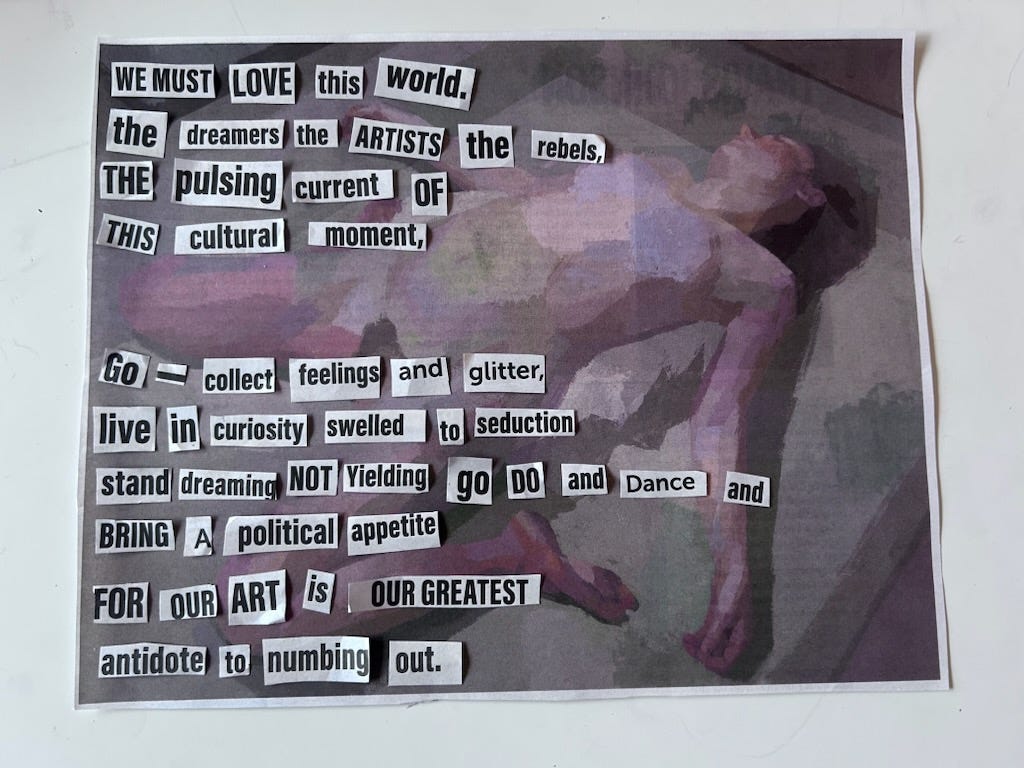 WE MUST LOVE this world.
the dreamers the ARTISTS the rebels,
THE pulsing current OF
THIS cultural moment,
GO — collect feelings and glitter,
live in curiosity swelled to seduction
stand dreaming NOT Yielding go DO and Dance and
BRING A political appetite
FOR OUR ART is OUR GREATEST
antidote to numbing out.